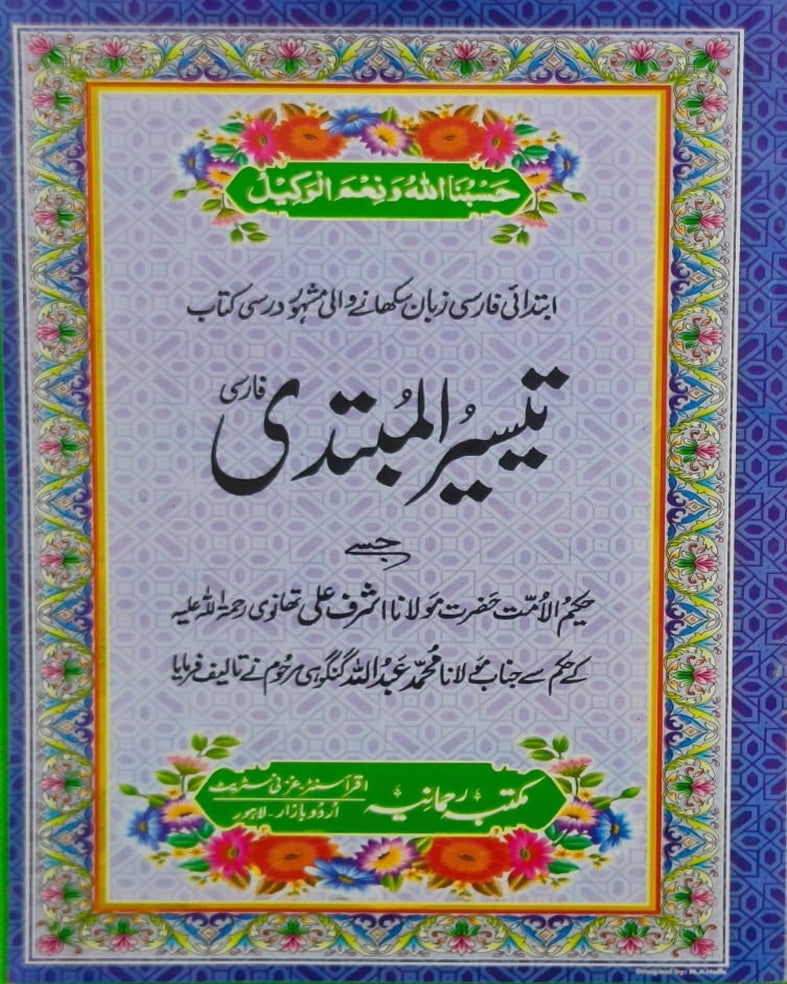 حَسْبُنَا اللّٰهُ وَنِعْمَ الْوَكِيْلُ
ابتدائی فارسی زبان سکھانے والی مشہور درسی کتاب
تیسیر المُبتدی فارسی
جسے
حکیمُ الاُمّت حضرت مولانا اشرف علی تھانوی رحمۃ اللہ علیہ
کے حکم سے جناب مولانا مُحمّد عَبدُ اللّٰہ گنگوہی مرحوم نے تالیف فرمایا
مکتبہ رحمانیہ
اقرأ سنٹر - غزنی سٹریٹ
اُردو بازار - لاہور
Designed by: M.A.Hafiz